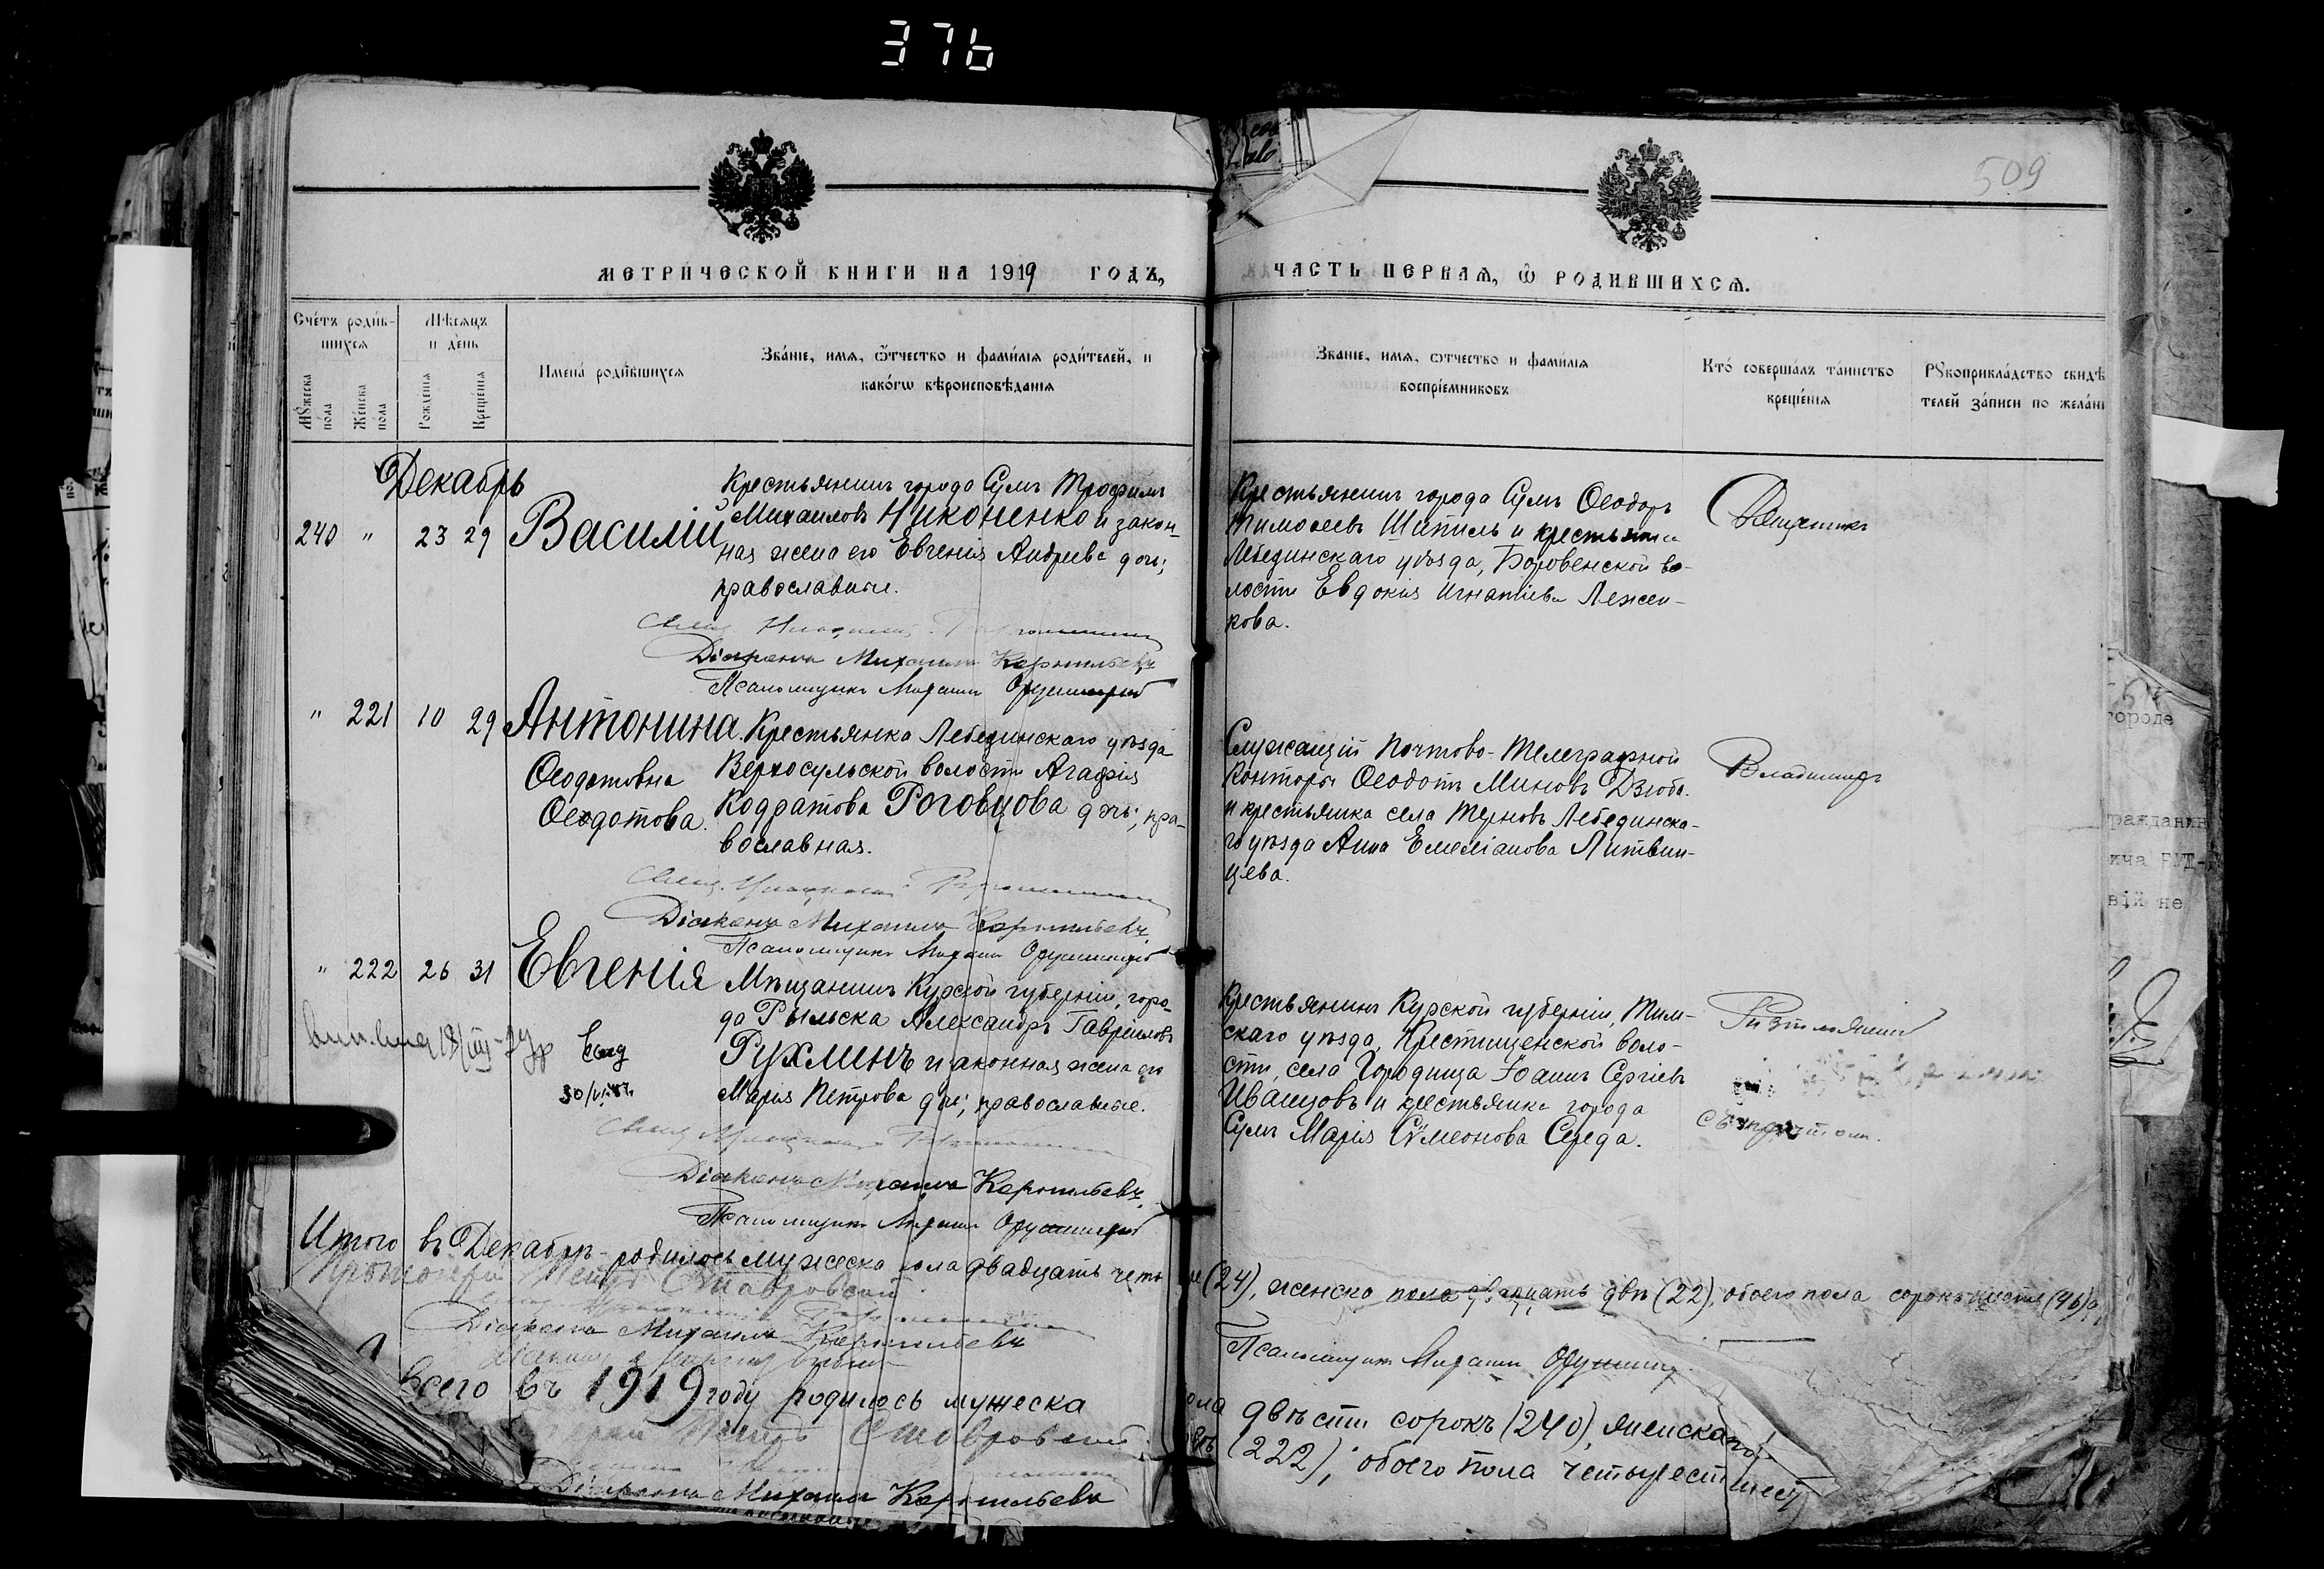 376
509
МЕТРИЧЕСКОЙ КНИГИ НА 1919 ГОДЪ,
ЧАСТЬ ПЕРВАЯ, Ѿ РОДИВШИХСЯ.
Счетъ родив-
шихся
Мужеска пола
Женска пола
Мѣсяцъ и день
Рожденія
Крещенія
Имена родившихся
Званіе, имя, ѿтчество и фамилія родителей, и
какогѡ вѣроисповѣданія
Званіе, имя, ѿтчество и фамилія
воспріемниковъ
Кто совершалъ таинство
крещенія
Рꙋкоприкладство свидѣ
телей записи по желані
Декабрь
240 " 23 29 Василій
Крестьянинъ города Сумъ Трофимъ
Михаиловъ Никоненко и закон-
ная жена его Евгенія Андреева дочь;
православные.
Крестьянинъ города Сумъ Ѳеодоръ
Тимоѳеевъ Шипиль и крестьянка
Лебединскаго уѣзда, Боровенской во-
лости Евдокія Игнатіева Лежен-
кова.
Свящ.
Діаконъ Михаилъ Корнильевъ
Псаломщикъ
" 221 10 29 Антонина
Ѳеодотовна
Ѳеодотова.
Крестьянка Лебединскаго уѣзда
Верхосульской волости Агафія
Кодратова Роговцова дочь; пра-
вославная.
Служащій Почтово-Телеграфной
Конторы Ѳеодотъ Миновъ Дзюба
и крестьянка села Терновъ Лебединска-
го уѣзда Анна Емеліанова Литвин-
цева.
Владимиръ
Свящ.
Діаконъ Михаилъ Корнильевъ
Псаломщикъ
" 222 26 31 Евгенія
Мѣщанинъ Курской губерніи, горо-
да Рыльска Александръ Гавріиловъ
Рухлинъ и законная жена его
Марія Петрова дочь; православные.
Крестьянинъ Курской губерніи, Тим-
скаго уѣзда, Крестищенской воло-
сти, села Городища Іоаннъ Сергіевъ
Иванцовъ и крестьянка города
Сумъ Марія Сѵмеонова Середа.
съ причтомъ.
Свящ.
Діаконъ Михаилъ Корнильевъ
Псаломщикъ
Итого въ Декабрѣ родилось мужеска пола двадцать четы
ре (24), женска пола двадцать двѣ (22), обоего пола сорокъ шесть (46)
Протоіерей Петръ Ставровскій
Діаконъ Михаилъ Корнильевъ
Псаломщикъ
Всего въ 1919 году родилось мужеска
пола двѣсти сорокъ (240), женскаго
(222), обоего пола четырест
Петръ Ставровскій
Діаконъ Михаилъ Корнильевъ
городе
ражданин